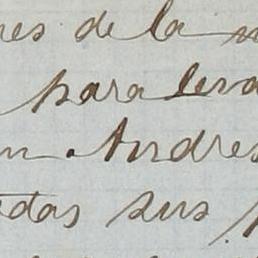 res de la
para leva
n. Andres
das sus